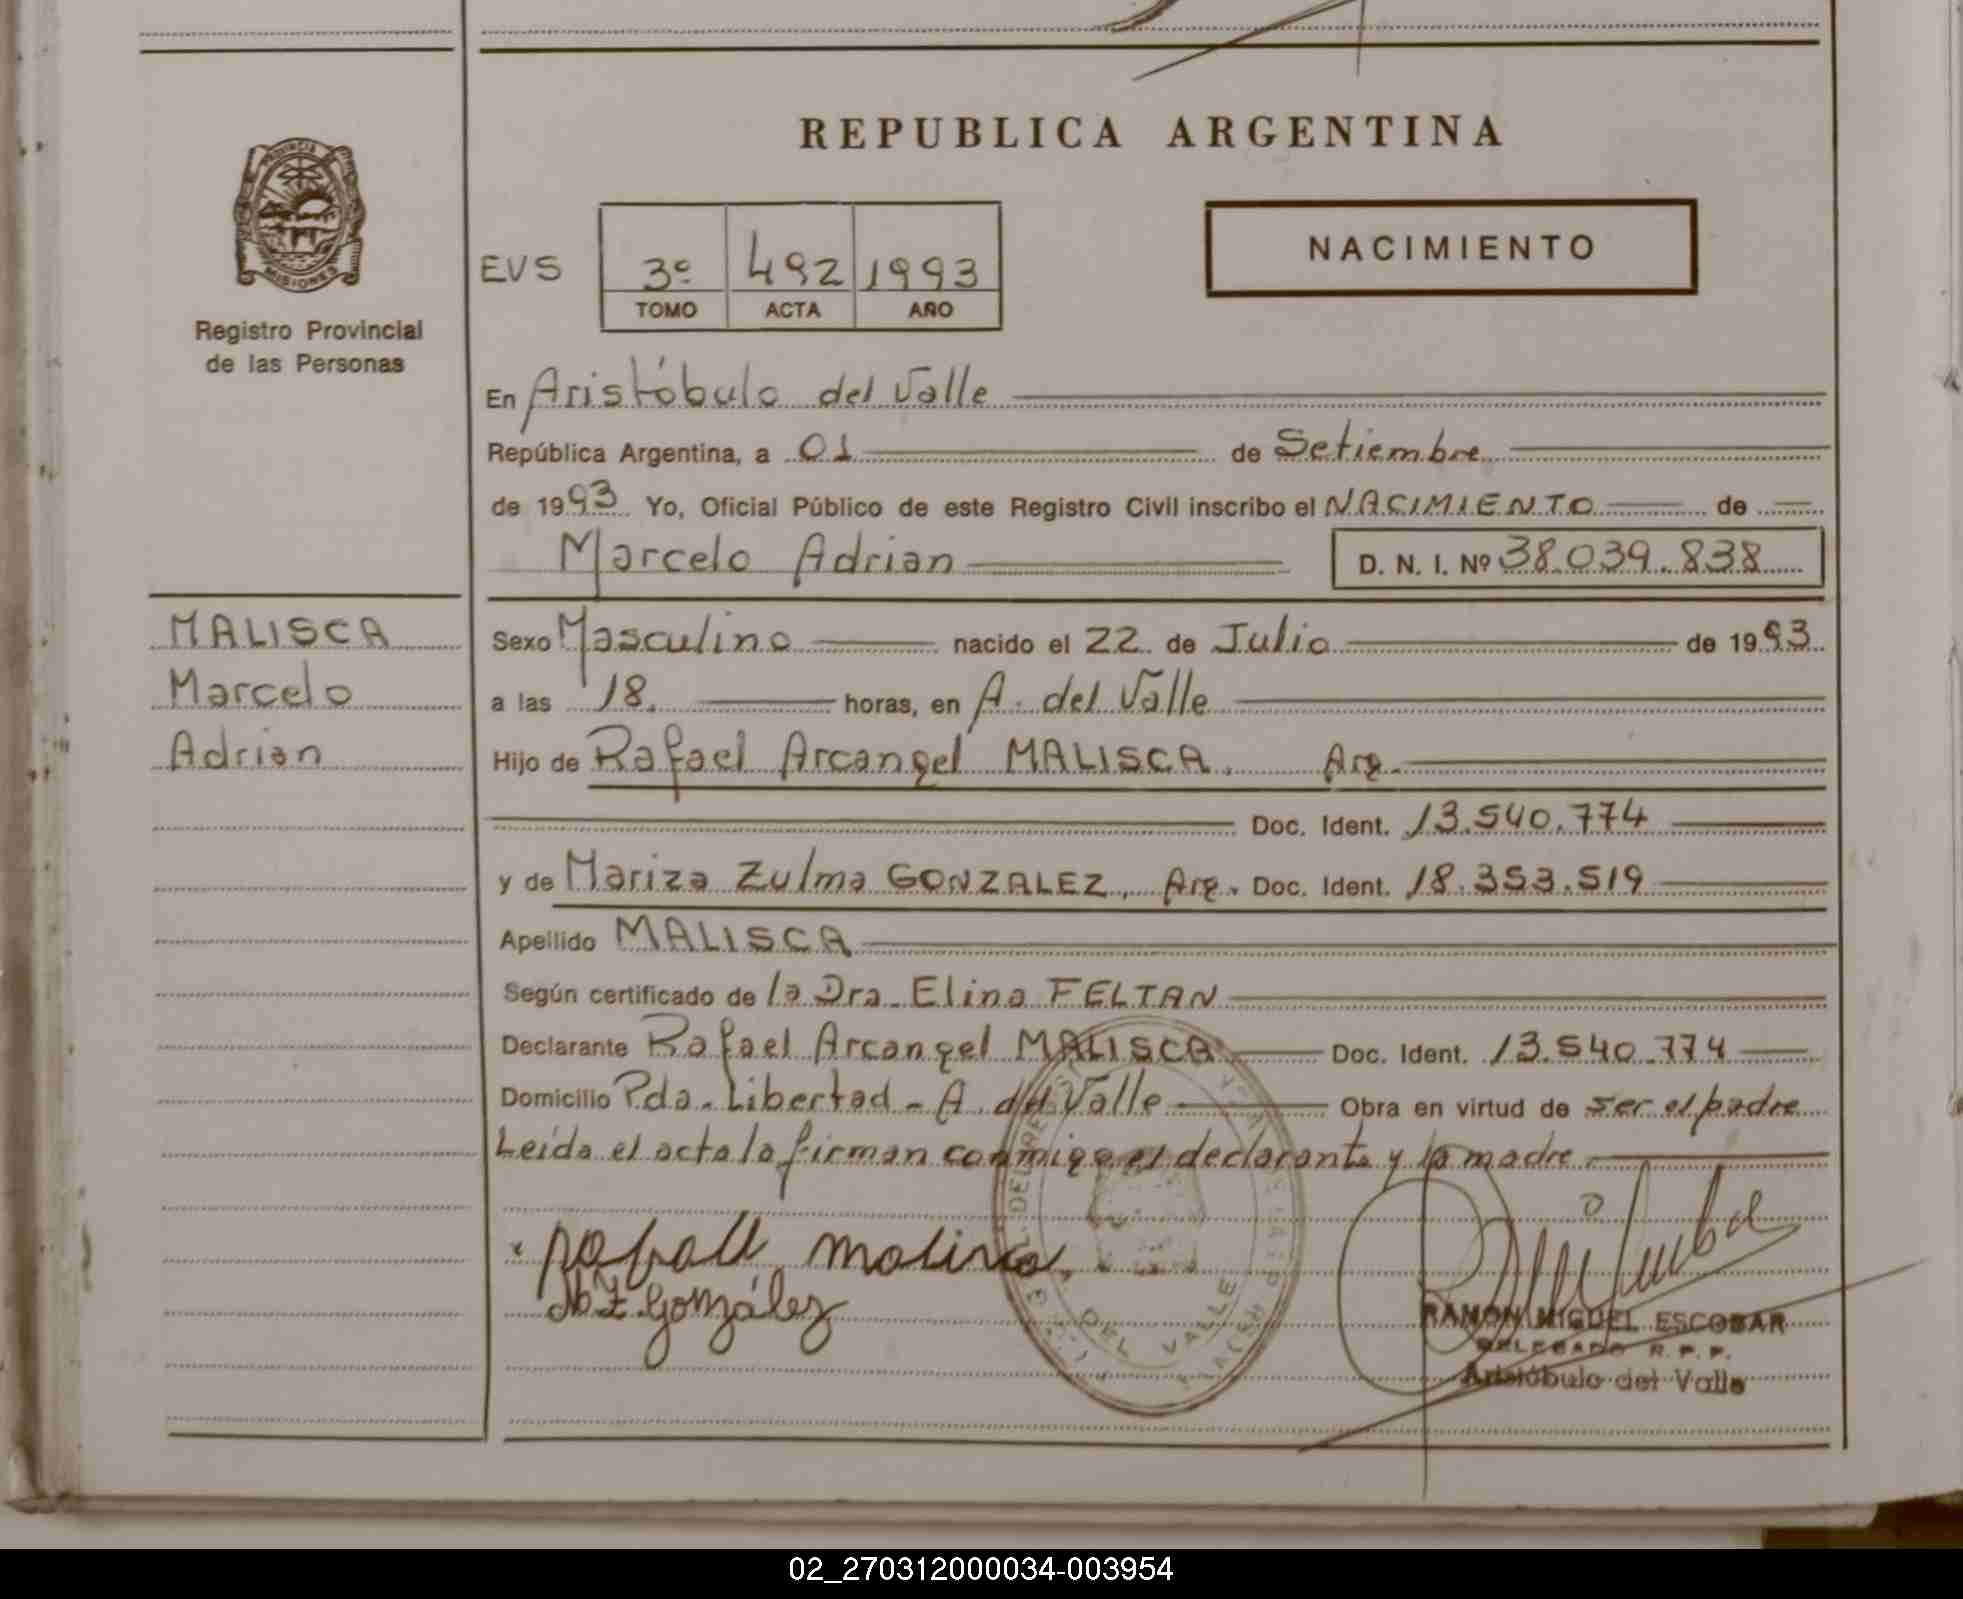 REPUBLICA ARGENTINA
PROVINCIA DE
MISIONES
Registro Provincial
de las Personas
NACIMIENTO
EVS 3º 492 1993
TOMO ACTA AÑO
En Aristóbulo del Valle
República Argentina, a 01 de Setiembre
de 1993 Yo, Oficial Público de este Registro Civil inscribo el NACIMIENTO de
Marcelo Adrian D. N. I. Nº 38.039.838
MALISCA
Marcelo
Adrian
Sexo Masculino nacido el 22 de Julio de 1993
a las 18. horas, en A. del Valle
Hijo de Rafael Arcangel MALISCA. Arg.
Doc. Ident. 13.540.774
y de Mariza Zulma GONZALEZ, Arg. Doc. Ident. 18.353.519
Apellido MALISCA
Según certificado de la Dra. Elina FELTAN
Declarante Rafael Arcangel MALISCA Doc. Ident. 13.540.774
Domicilio Pda. Libertad - A. del Valle Obra en virtud de ser el padre
Leída el acta la firman conmigo el declarante y la madre.
M Z. González
DEL VALLE
RAMON MIGUEL ESCOBAR
DELEGADO R. P. P.
Aristóbulo del Valle
02_270312000034-003954